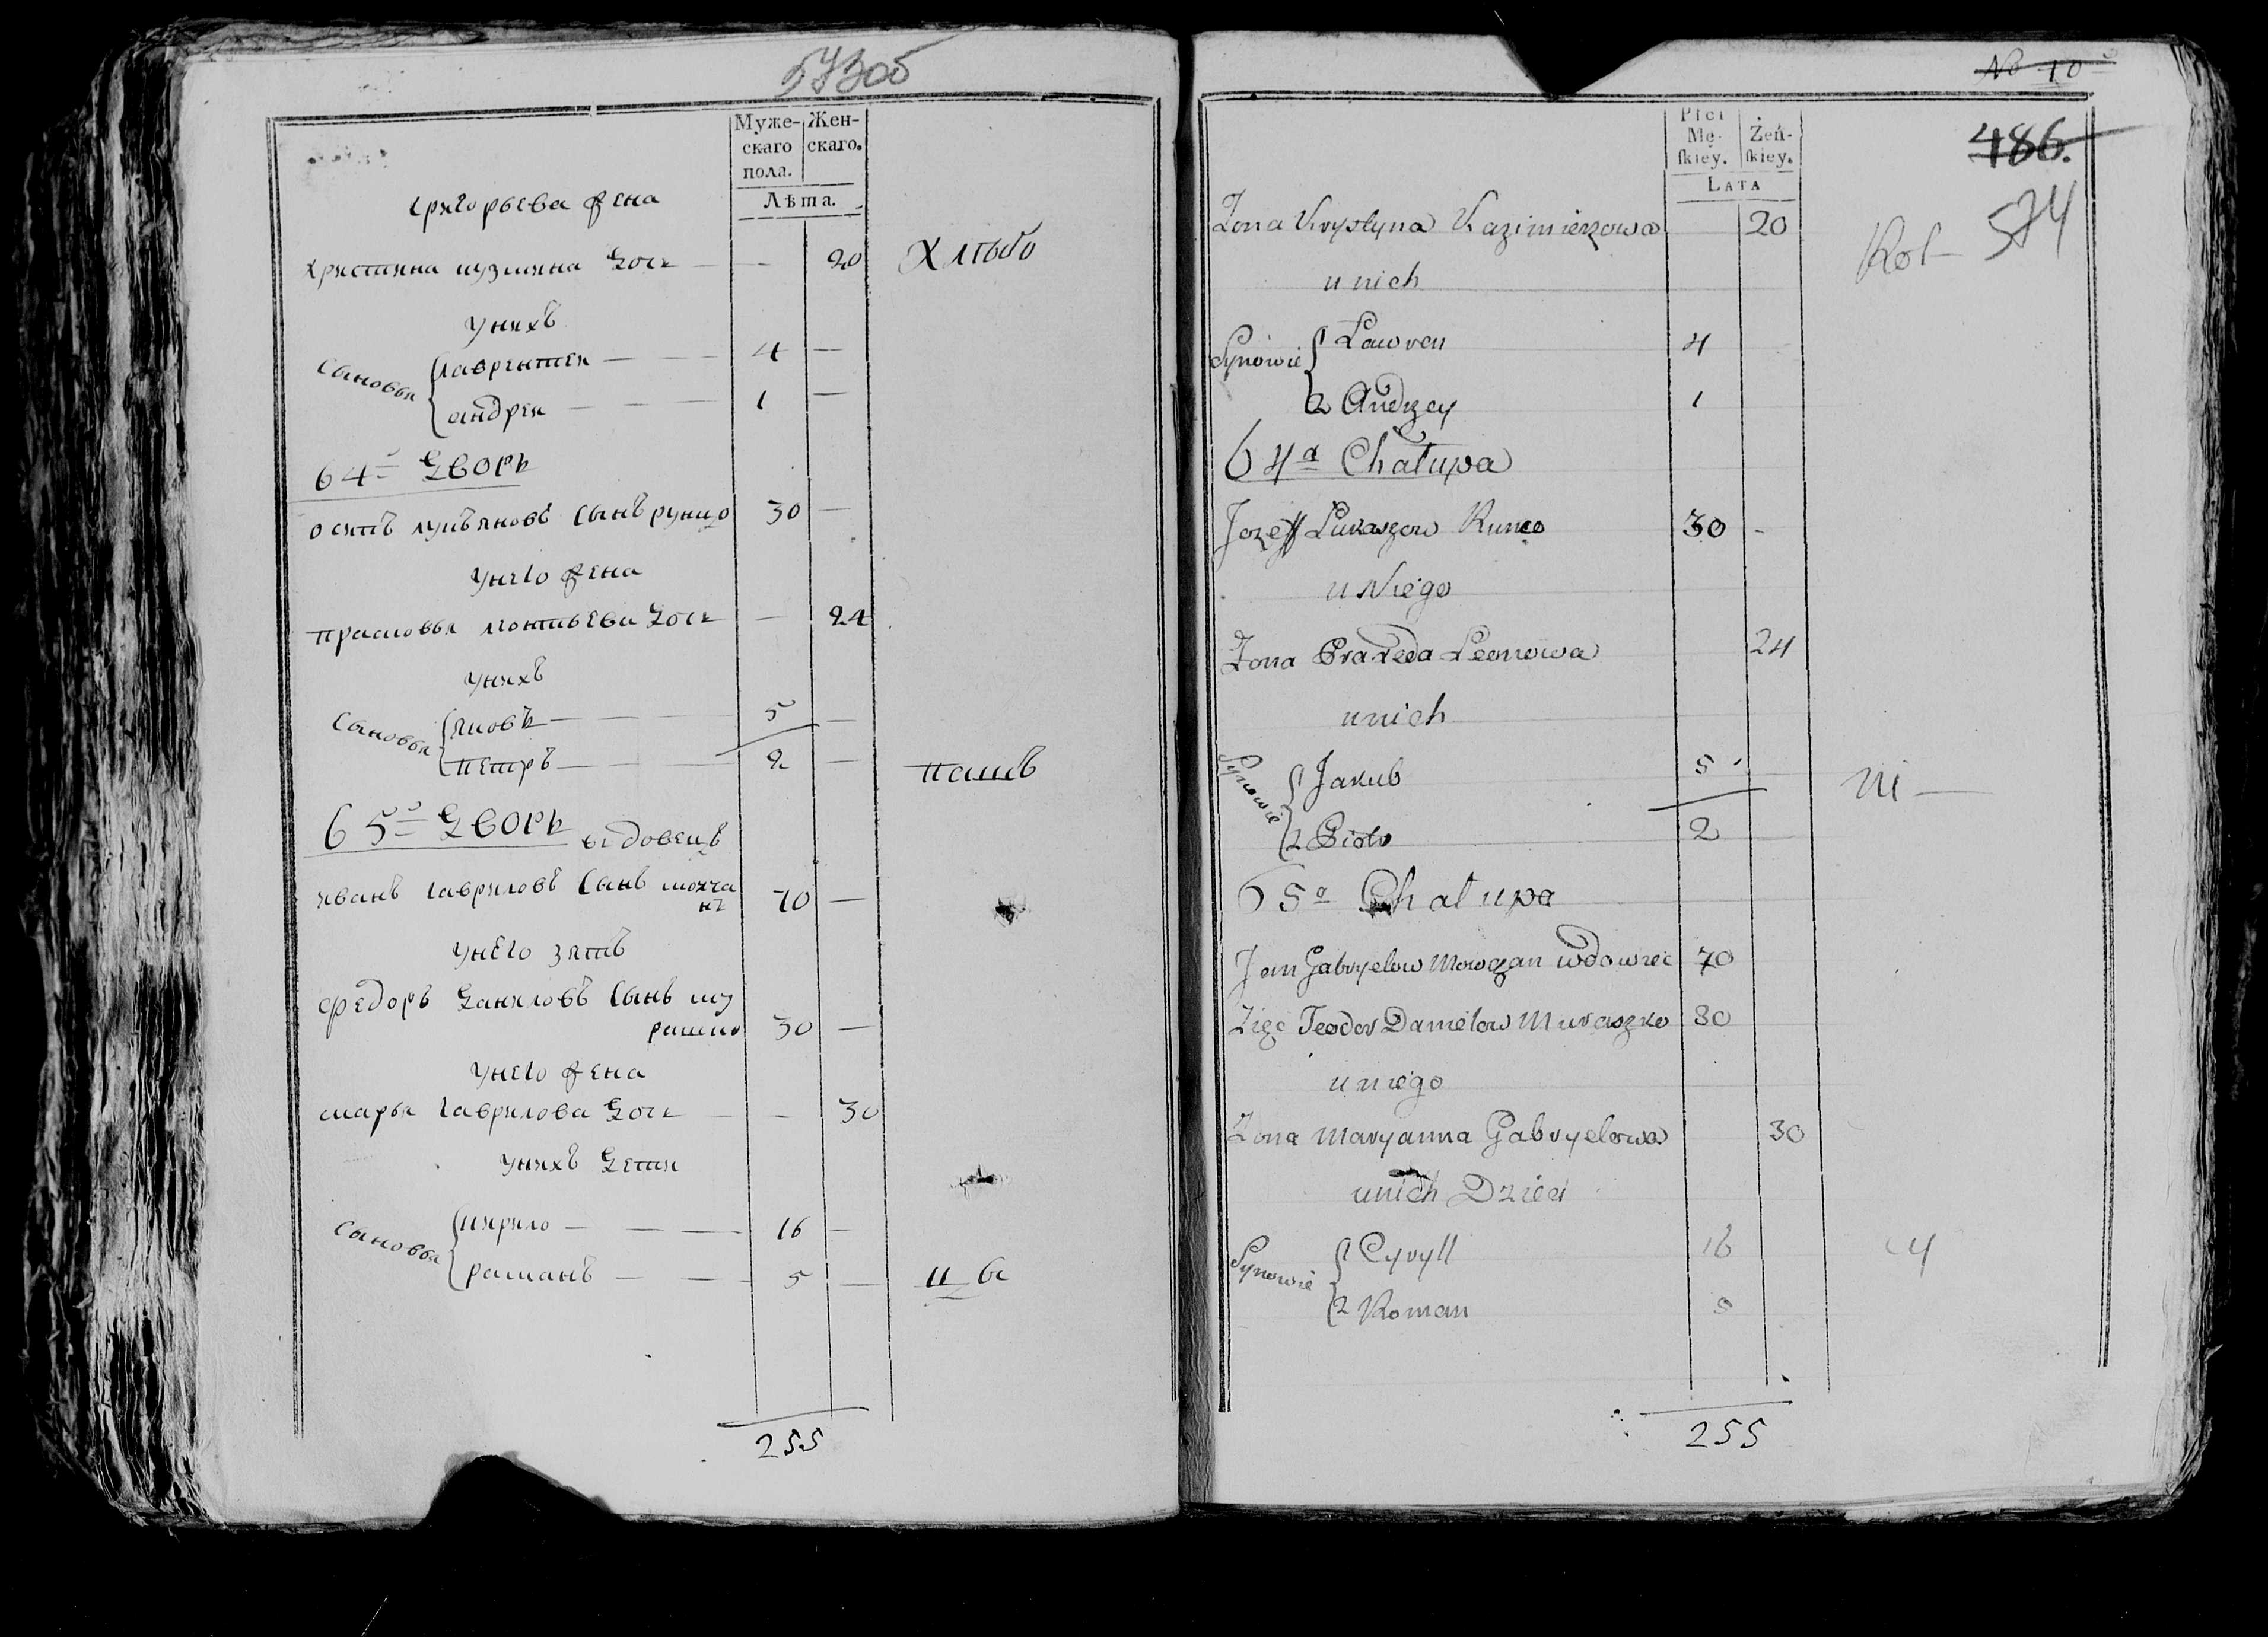 573об
Муже-
скаго
пола.
Жен-
скаго.
Лѣта.
григорьева жена
христина кузмина дочь — — 20
унихъ
сыновья
лаврентеи — — 4 —
андреи — — — 1 —
64й дворъ
осипъ лукъяновъ сынъ рунцо 30 —
унего жена
прасковья леонтьева дочь — 24
унихъ
сыновья
яковъ — — — 5 —
петръ — — — 2 —
65й дворъ вдовецъ
иванъ гавриловъ сынъ молча
нъ 70 —
унего зять
федоръ даниловъ сынъ му
рашко 30 —
унего жена
марья гаврилова дочь — — 30
унихъ дети
сыновья
кирило — — — 16 —
раманъ — — — 5 —
255
No 10
486.
574
Płci
Mę-
ſkiey.
Żeń-
ſkiey.
LATA
Żona Krystyna Kazimierzowa 20
u nich
Synowie
Lawren 4
2 Andrzey 1
64a Chałupa
Jozeff Łukaszow Runco 30 -
u Niego
Żona Praxeda Leonowa 24
u nich
Synowie
Jakub 5
2 Piotr 2
65a Chałupa
Jan Gabryelow Mowczan wdowiec 70
Zięć Teodor Daniełow Muraszko 30
u niego
Żona Maryanna Gabryelowa 30
u nich Dzieci
Synowie
Cyryll 16
2 Roman 5
255